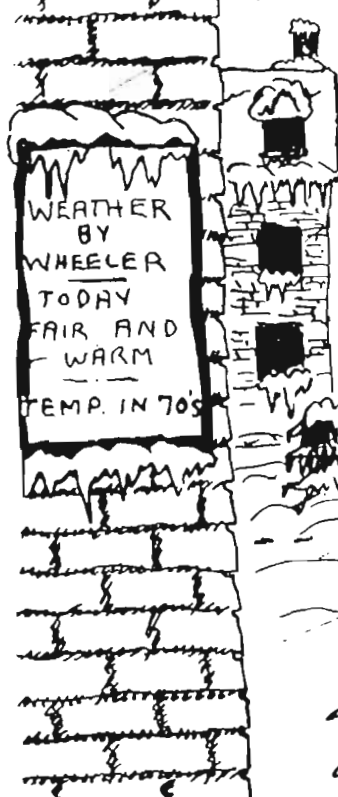 WEATHER
BY
WHEELER
TODAY
FAIR AND
WARM
TEMP. IN 70's